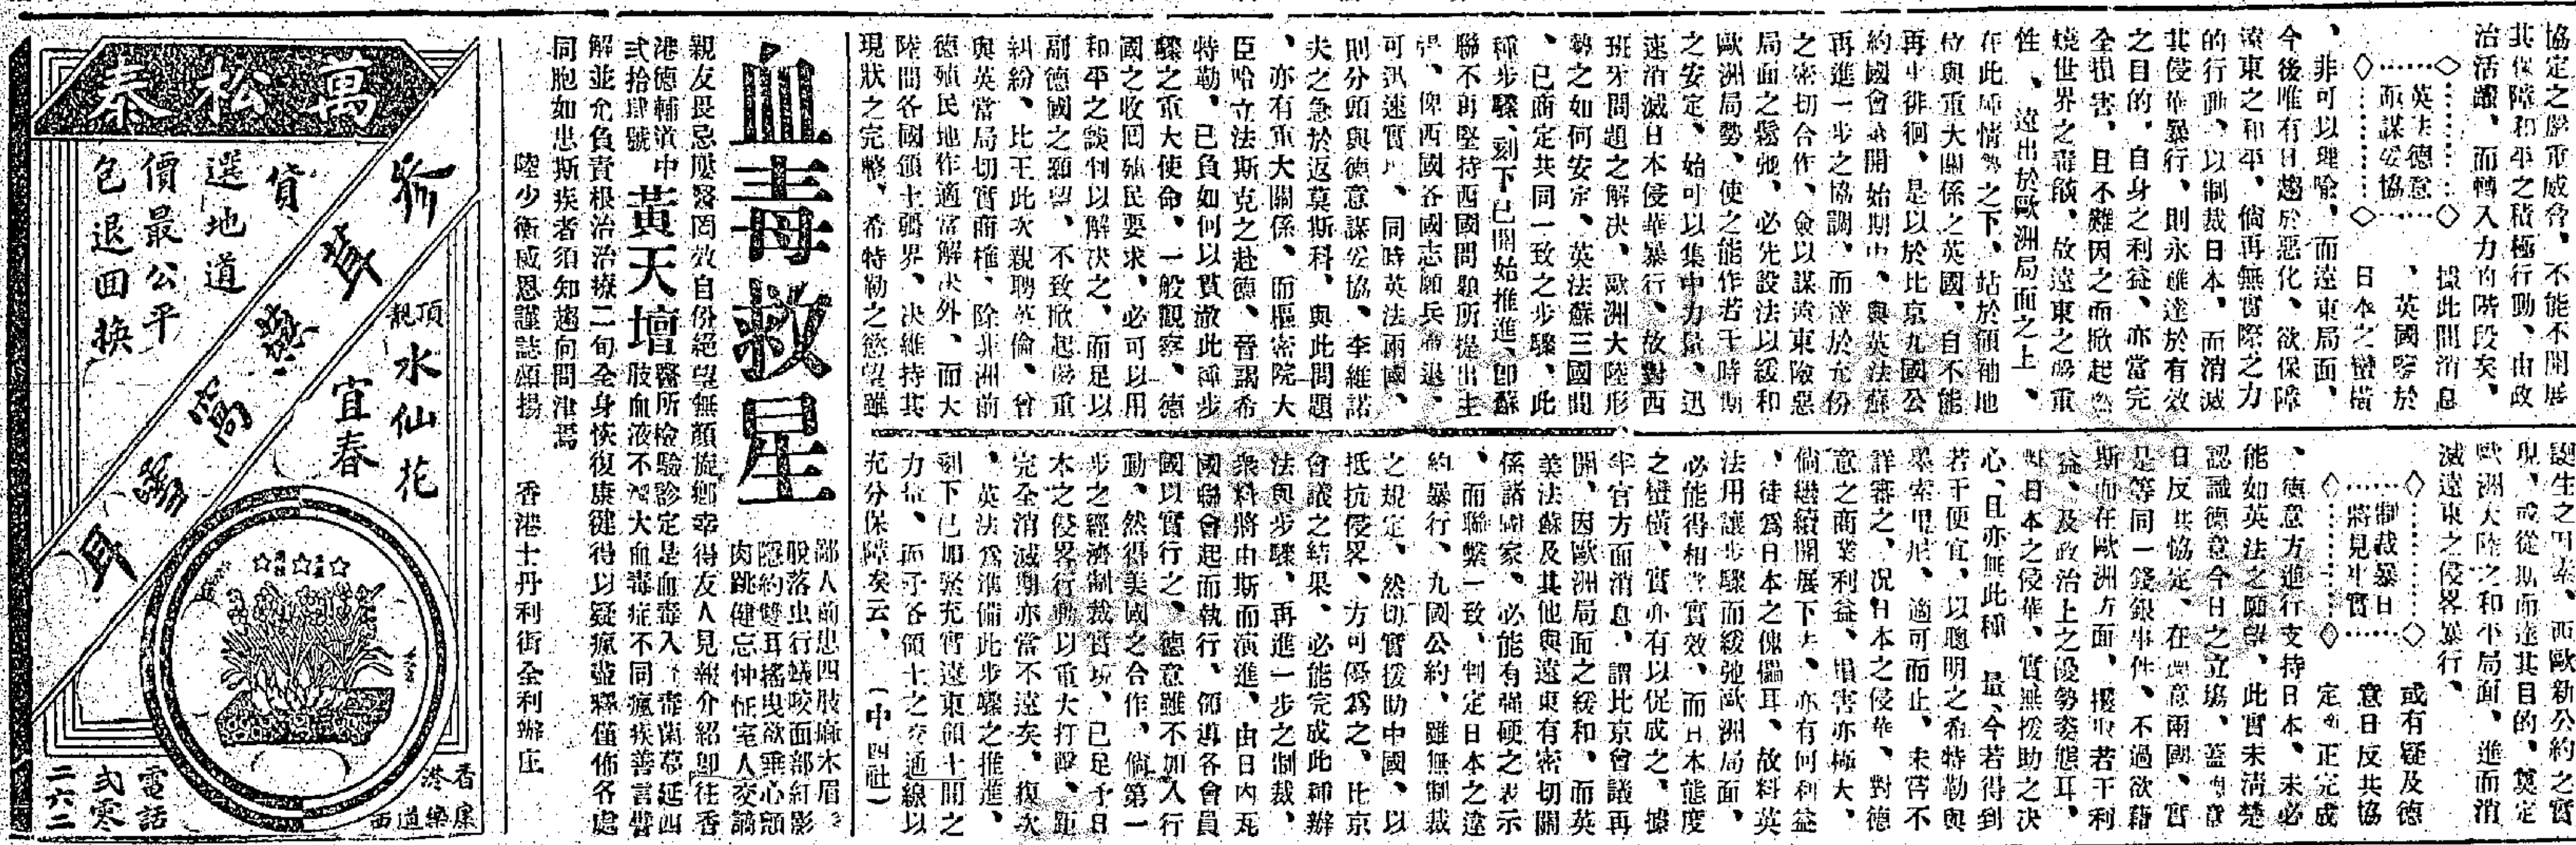 協定之嚴重威脅、不能不開展
其保障和平之積極行動、由政
治活躍、而轉入力的階段矣、
英法德意
而謀妥協
據此間消息
、英國鑒於
日本之蠻橫
、非可以理喻、而遠東局面、
今後唯有日趨於惡化、欲保障
遠東之和平、倘再無實際之力
的行動、以制裁日本、而消滅
其侵華暴行、則永難達於有效
之目的、自身之利益、亦當完
全損害、且不難因之而掀起燃
燒世界之毒燄、故遠東之嚴重
性、遠出於歐洲局面之上、
在此種情勢之下、站於領袖地
位與重大關係之英國、自不能
再事徘徊、是以於比京九國公
約國會議開始期中、與英法蘇
再進一步之協調、而達於充份
之密切合作、僉以謀遠東險惡
局面之鬆弛、必先設法以緩和
歐洲局勢、使之能作若干時期
之安定、始可以集中力量、迅
速消滅日本侵華暴行、故對西
班牙問題之解決、歐洲大陸形
勢之如何安定、英法蘇三國間
、已商定共同一致之步驟、此
種步驟、刻下已開始推進、卽蘇
聯不再堅持西國問題所提出主
張、俾西國各國志願兵撤退、
可迅速實、同時英法兩國、
則分頭與德意謀妥協、李維諾
夫之急於返莫斯科、與此問題
、亦有重大關係、而樞密院大
臣哈立法斯克之赴德、晉謁希
特勒、已負如何以貫澈此種步
驟之重大使命、一般觀察、德
國之收回殖民要求、必可以用
和平之談判以解決之、而足以
副德國之願望、不致掀起嚴重
糾紛、比王此次親聘英倫、曾
與英當局切實商榷、除非洲前
德殖民地作適當解決外、而大
陸間各國領土疆界、決維持其
現狀之完整、希特勒之慾望雖
之因素、西歐新公約之實
現、或從斯而達其目的、奠定
歐洲大陸之和平局面、進而消
滅遠東之侵畧暴行、
制裁暴日
將見事實
或有疑及德
意日反共協
定正完成
、德意方進行支持日本、未必
能如英法之願望、此實未清楚
認識德意今日之立塲、蓋
日反共協定、在德意兩國、實
是等同一錢銀事件、不過欲藉
斯而在歐洲方面、攫取若干利
益、及政治上之優勢姿態耳、
對日本之侵華、實無援助之決
心、且亦無此種力量、今若得到
若干便宜、以聰明之希特勒與
墨索里尼、適可而止、未嘗不
詳審之、況日本之侵華、對德
意之商業利益、損害亦極大、
倘繼續開展下去、亦有何利益
、徒爲日本之傀儡耳、故料英
法用讓步驟而緩弛歐洲局面、
必能得相當實效、而日本態度
之蠻橫、實亦有以促成之、據
牢官方面消息、謂比京會議再
開、因歐洲局面之緩和、而英
美法蘇及其他與遠東有密切關
係諸國家、必能有强硬之表示
、而聯繫一致、判定日本之違
約暴行、九國公約、雖無制裁
之規定、然切實援助中國、以
抵抗侵畧、方可優爲之、比京
會議之結果、必能完成此種辦
法與步驟、再進一步之制裁、
衆料將由斯而演進、由日內瓦
國聯會起而執行、領導各會員
國以實行之、德意雖不加入行
動、然得美國之合作、倘第一
步之經濟制裁實現、已足予日
本之侵畧行動以重大打擊、距
完全消滅期亦當不遠矣、復次
、英法爲準備此步驟之推進、
刻下已加緊充實遠東領土間之
力量、而予各領土之交通線以
充分保障矣云、（中四社）
血毒救星
鄙人前患四肢麻木眉
脫落虫行蟻咬面部紅影
隱約雙耳搖曳欲垂心顫
肉跳健忘忡怔室人交謫
親友畏忌屢醫罔效自份絕望無顏旋鄉幸得友人見報介紹卽往香
港德輔道中黃天壇醫所檢驗診定是血毒入毒菌蔓延四
弍拾肆號肢血液不潔大血毒症不同瘋疾善言譬
解並允負責根治治療二旬全身恢復康健得以疑瘋盡釋僅佈各處
同胞如患斯疾者須知趨向問津焉
陸少衡感恩謹誌頌揚 香港士丹利街全利辦庄
萬松泰
參茸藥
貨
選地道
價最公平
包退回換
頂靚
水仙花
宜春
香港
康樂道西
電話
弍零
二六二